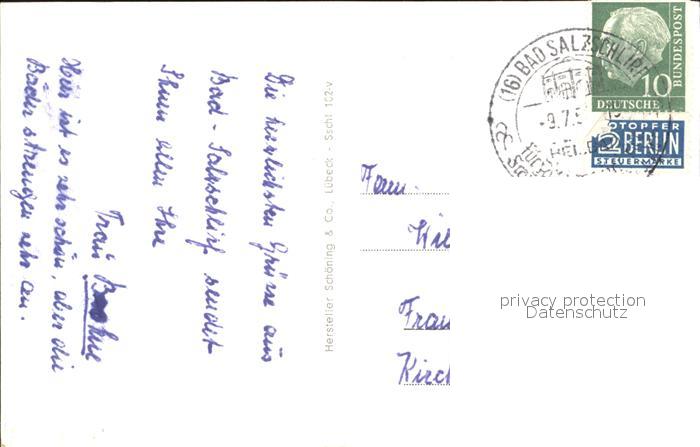 Die herzlichsten Grüsse aus
Bad-Salzschlirf sendet
Ihnen allen Ihre
Frau
Hier ist es sehr schön, aber die
Bäder strengen sehr an.
Hersteller Schöning & Co., Lübeck - Sscht 102-v
Fam.
Wil
Frau
Kirch
(16) BAD SALZSCHLIRF
-9.7.5
10
DEUTSCHE
BUNDESPOST
NOTOPFER
2 BERLIN
STEUERMARKE
privacy protection
Datenschutz